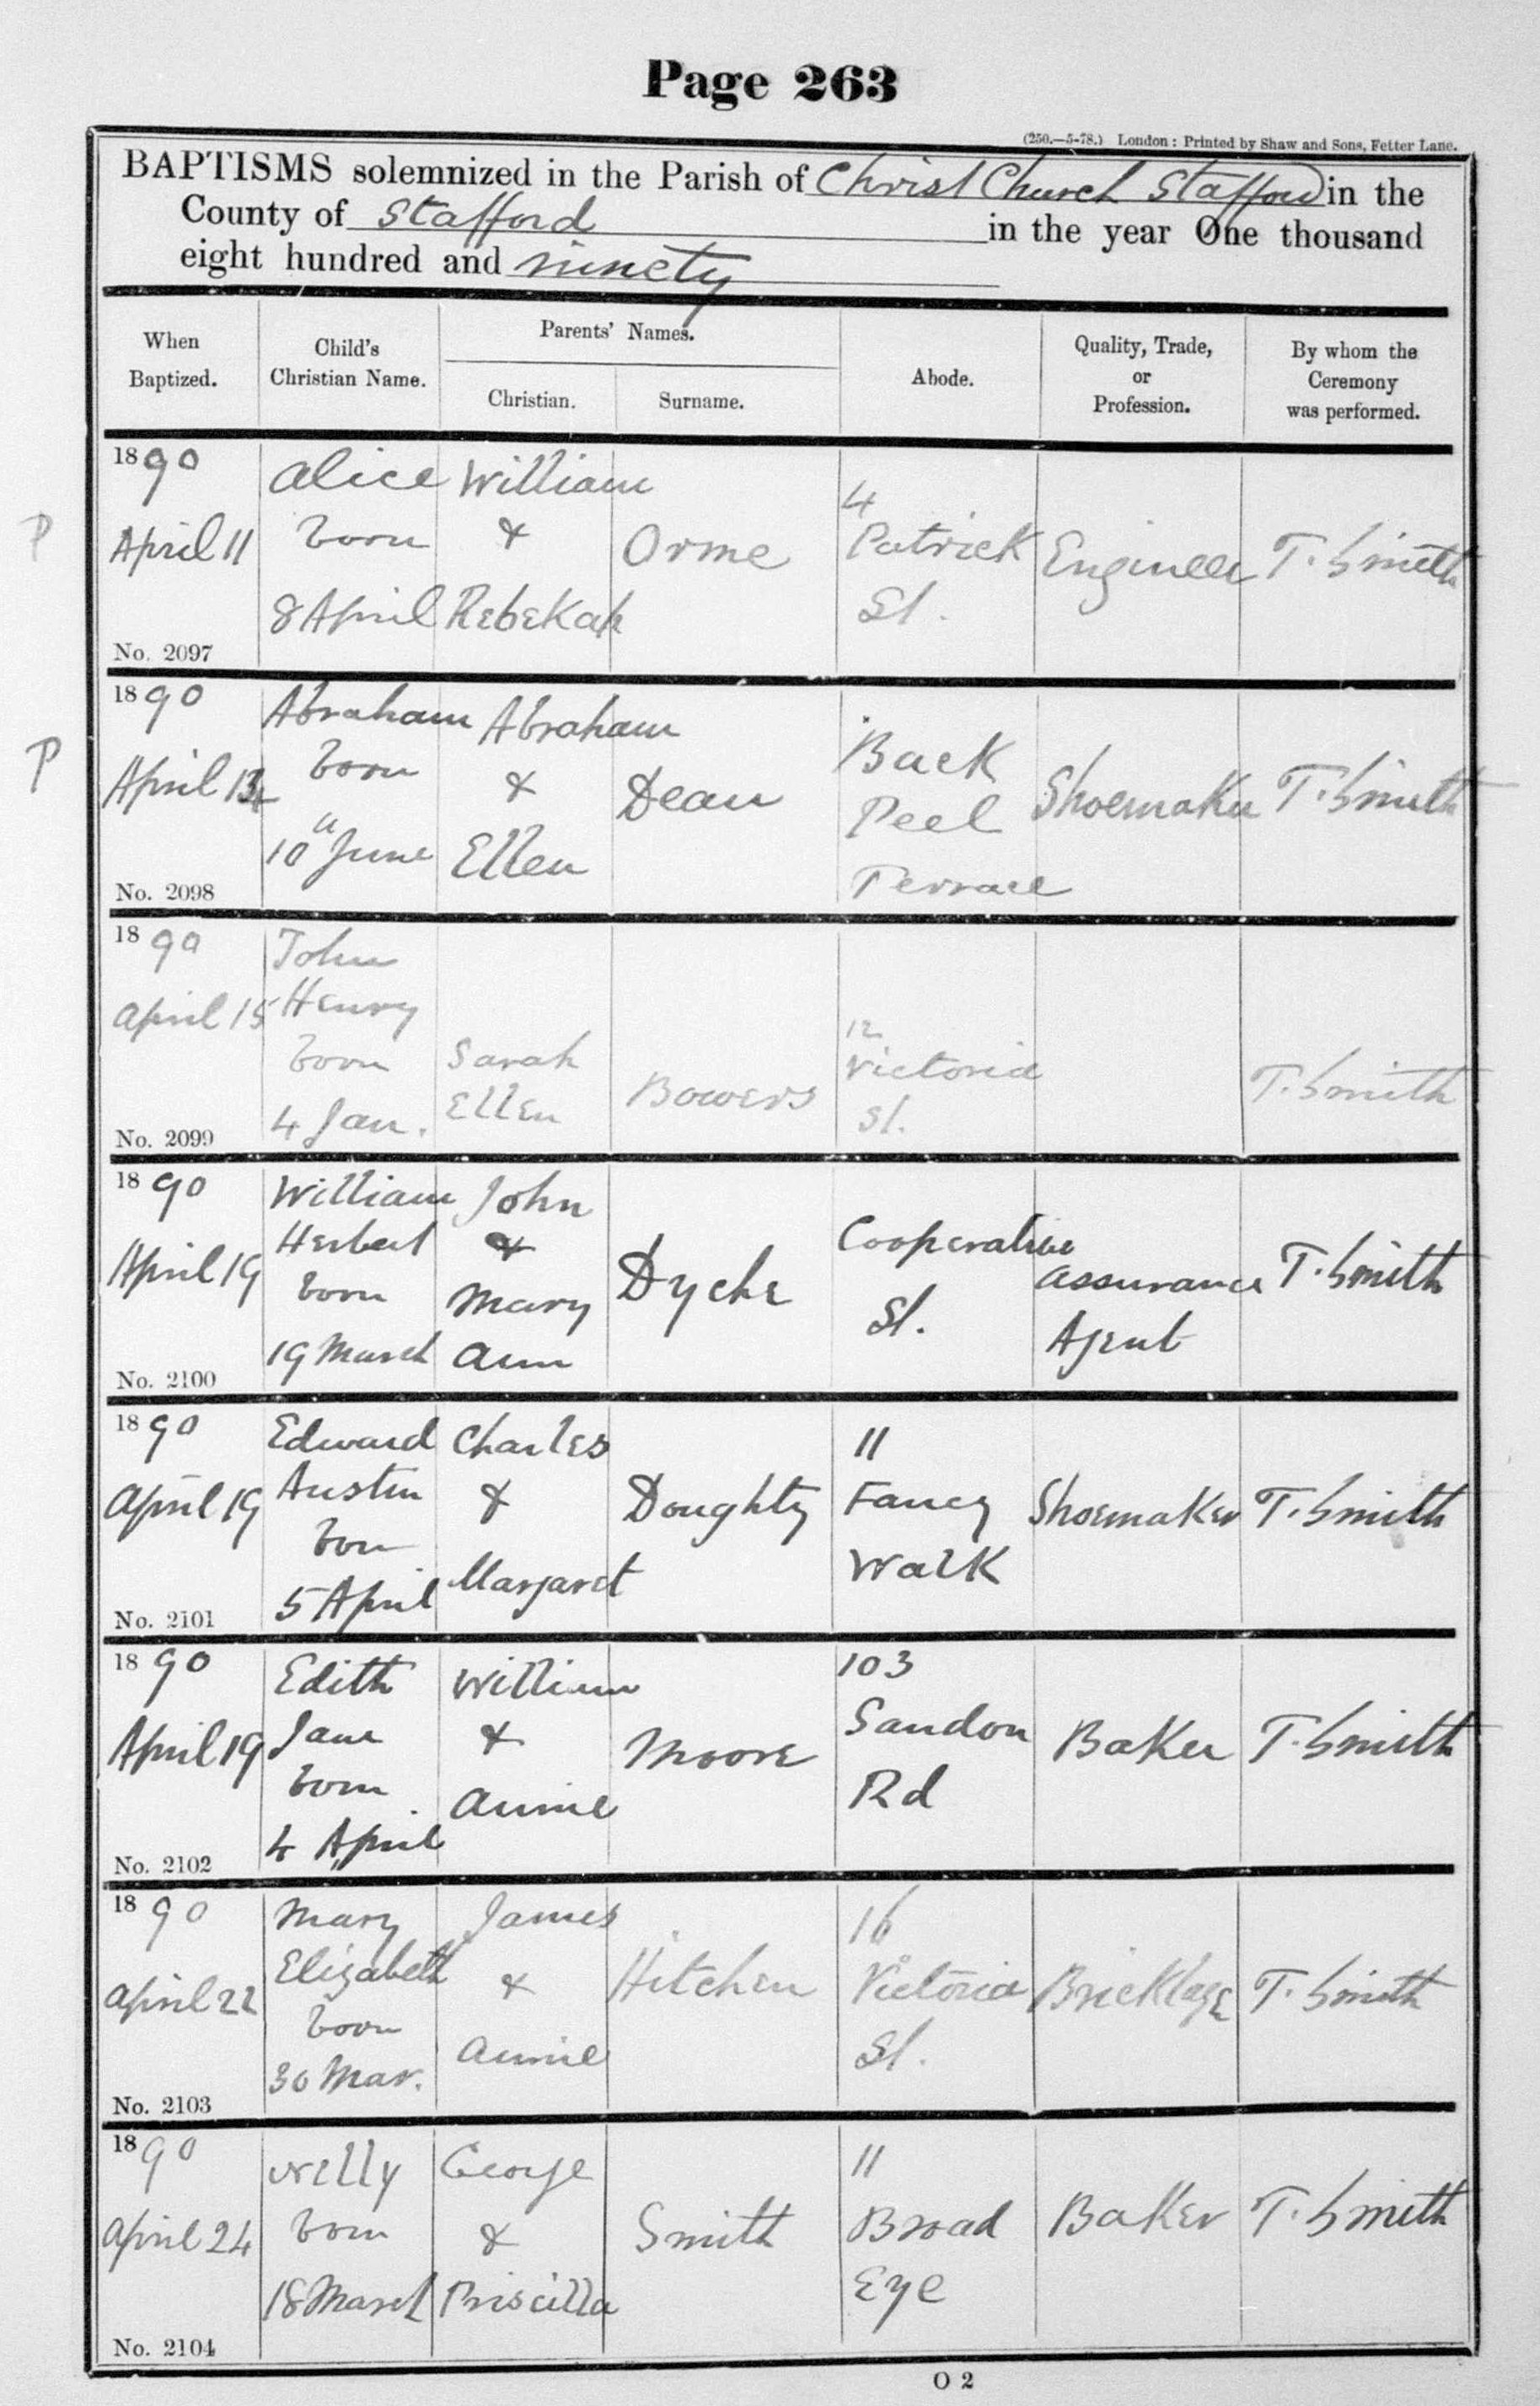 Page 263
(250.—5-78.) London: Printed by Shaw and Sons, Fetter Lane.
BAPTISMS solemnized in the Parish of Christ Church Stafford in the
County of Stafford in the year One thousand
eight hundred and ninety
When Baptized.
Child's Christian Name.
Parents' Names.
Christian.
Surname.
Abode.
Quality, Trade, or Profession.
By whom the Ceremony was performed.
P
1890
April 11
No. 2097
Alice
born
8 April
William
&
Rebekah
Orme
4
Patrick
St.
Engineer
T. Smith
P
1890
April
No. 2098
Abraham
born
10" June
Abraham
&
Ellen
Dean
Back
Peel
Terrace
Shoemaker
T. Smith
1890
April 15
No. 2099
John
Henry
born
4 Jan.
Sarah
Ellen
Bowers
12
Victoria
St.
T. Smith
1890
April 19
No. 2100
William
Herbert
born
19 March
John
&
Mary
Ann
Dyche
Cooperative
St.
Assurance
Agent
T. Smith
1890
April 19
No. 2101
Edward
Austin
born
5 April
Charles
&
Margaret
Doughty
11
Fancy
Walk
Shoemaker
T. Smith
1890
April 19
No. 2102
Edith
Jane
born
4 April
William
&
Annie
Moore
103
Sandon
Rd
Baker
T. Smith
1890
April 22
No. 2103
Mary
Elizabeth
born
30 Mar.
James
&
Annie
Hitchen
16
Victoria
St.
T. Smith
1890
April 24
No. 2104
Nelly
born
18 March
George
&
Priscilla
Smith
11
Broad
Eye
Baker
T. Smith
O 2